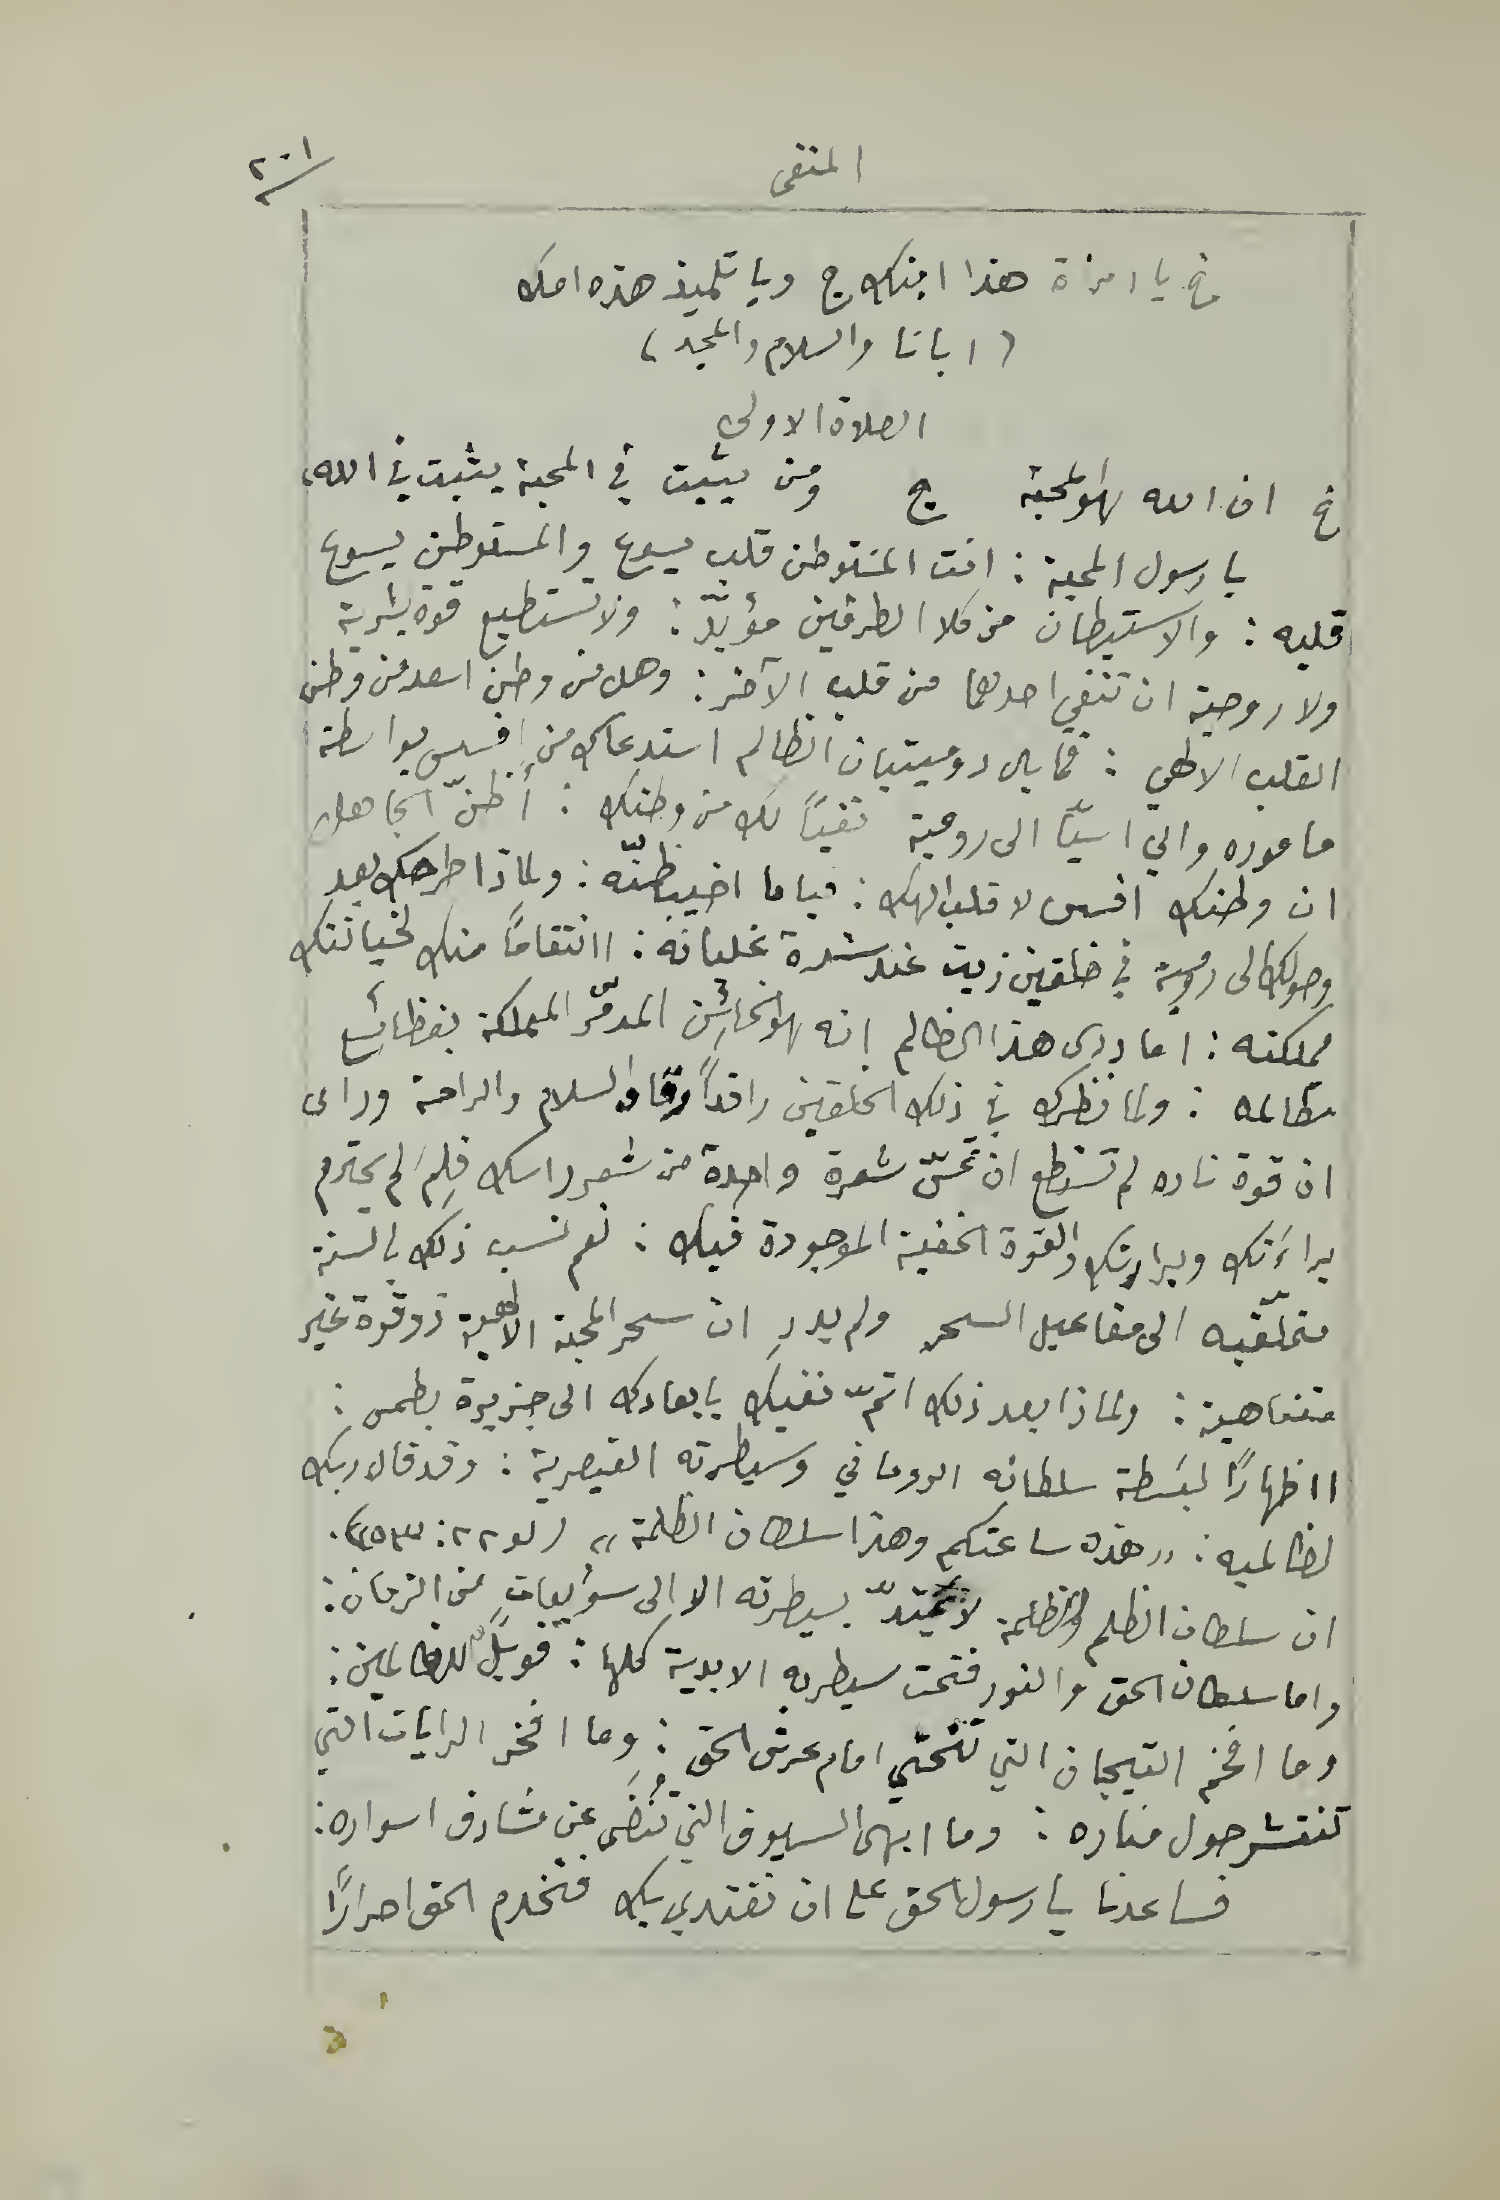 المنفى
٢٠١
خ يا امرأة هذا ابنك ج ويا تلميذ هذه امك
(ابانا والسلام والمجد)
الصلاة الاولى
خ ان الله لهو المحبة ج ومن يثبت في المحبة يثبت في الله،
يا رسول المحبة : انت المتوطن قلب يسوع والمستوطن يسوع
قلبه : والاستيطان من كلا الطرفين مؤبّد : ولا تستطيع قوة بشرية
ولا روحية ان تنفي احدهما من قلب الآخر : وهل من وطن اسعد من وطن
القلب الالهي : فما بال دوميتيان الظالم استدعاك من افسس بواسطة
مأموره والي اسيّا الى رومية نفيًا لك من وطنك : أظنّ الجاهل
ان وطنك افسس لا قلب الهك : فيا ما اخيب ظنّه : ولماذا طرحك بعد
وصولك الى رومية في خلقين زيت عند شدة غليانه : اانتقامًا منك لخيانتك
مملكته : اما درى هذا الظالم انه لهو الخائن المدمّر المملكة بفظائع
مظالمه : ولما نظرك في ذلك الخلقين راقدًا رقاد السلام والراحة ورأى
ان قوة ناره لم تستطع ان تمسّ شعرة واحدة من شعر راسك فلِمَ لم يحترم
براءَتك وبرارتك والقوة الخفية الموجودة فيك : نعم نسب ذلك بالسنة
متملّقيه الى مفاعيل السحر ولم يدرِ ان سحر المحبة الالهية ذو قوة غير
متناهية : ولماذا بعد ذلك اتمّ نفيك بابعادك الى جزيرة بطمس :
ااظهارًا لبسطة سلطانه الروماني وسيطرته القيصرية : وقد قال ربك
لظالميه : „هذه ساعتكم وهذا سلطان الظلمة“ (لو٢٢ : ٥٣).
ان سلطان الظلم والظلمة لا يمتدّ بسيطرته الا الى سويعات من الزمان :
واما سلطان الحق والنور فتحت سيطرته الابدية كلها : فويلٌ للظالمين :
وما افخم التيجان التي تنحني امام عرش الحق : وما افخر الرايات التي
تنتشر حول مناره : وما ابهى السيوف التي تُنضَى عن مشارف اسواره :
فساعدنا يا رسول الحق على ان نقتدي بك فنخدم الحق احرارًا